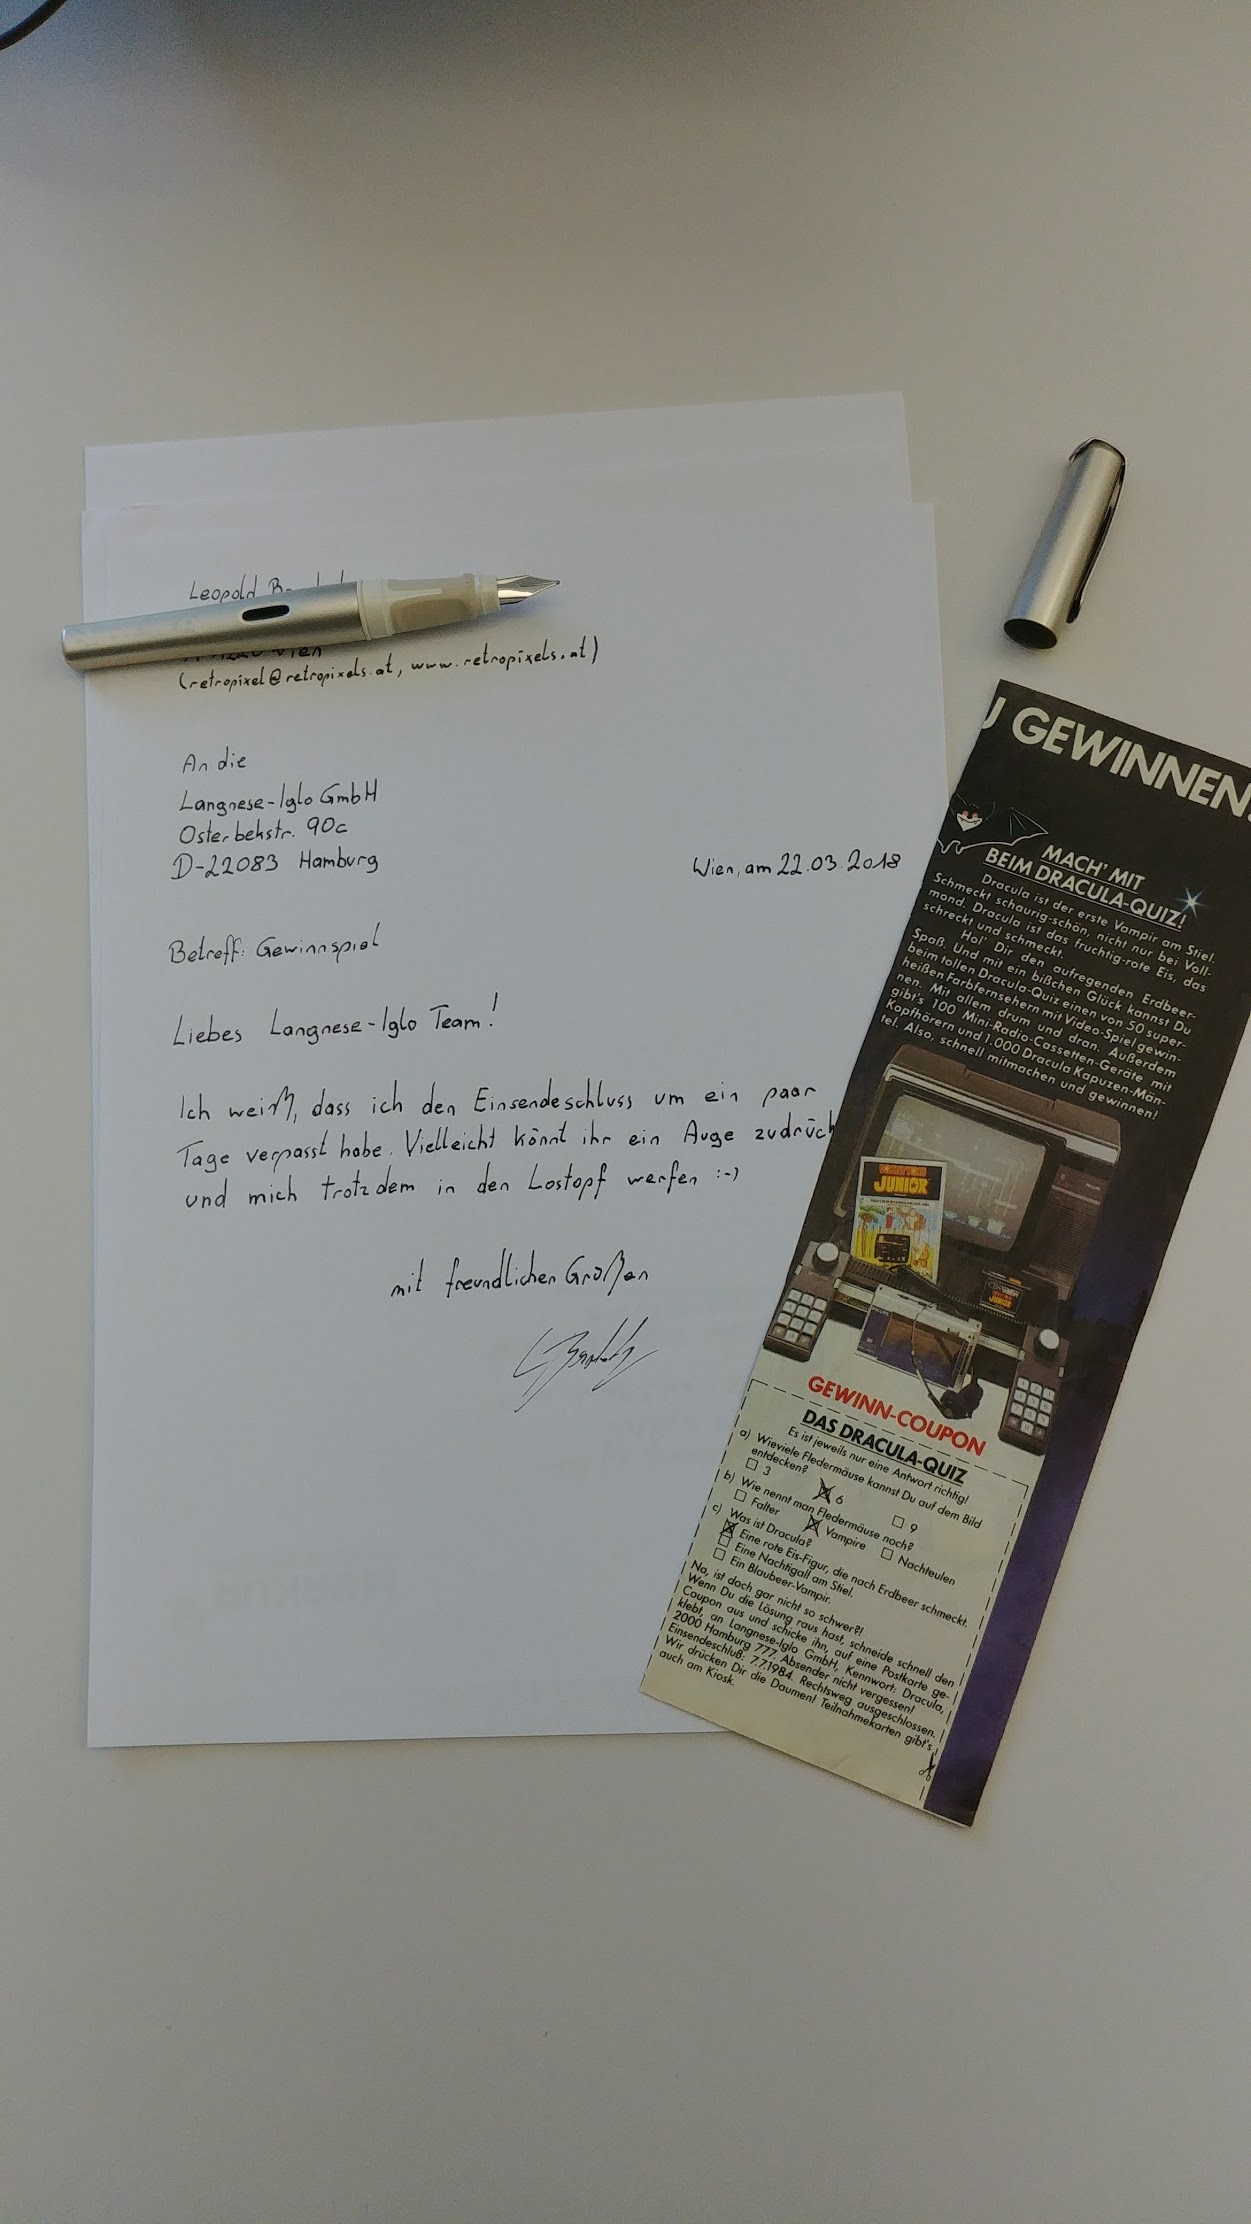 Leopold
Wien
(retropixel@retropixels.at, www.retropixels.at)
An die
Langnese-Iglo GmbH
Osterbekstr. 90c
D-22083 Hamburg
Wien, am 22.03.2018
Betreff: Gewinnspiel
Liebes Langnese-Iglo Team!
Ich weiß, dass ich den Einsendeschluss um ein paar
Tage verpasst habe. Vielleicht könnt ihr ein Auge zudrück
und mich trotzdem in den Lostopf werfen :-)
mit freundlichen Grüßen
U GEWINNEN.
MACH' MIT
BEIM DRACULA-QUIZ!
Dracula ist der erste Vampir am Stiel.
Schmeckt schaurig-schön, nicht nur bei Voll-
mond. Dracula ist das fruchtig-rote Eis, das
schreckt und schmeckt.
Hol' Dir den aufregenden Erdbeer-
Spaß. Und mit ein bißchen Glück kannst Du
beim tollen Dracula-Quiz einen von 50 super-
heißen Farbfernsehern mit Video-Spiel gewin-
nen. Mit allem drum und dran. Außerdem
gibt's 100 Mini-Radio-Cassetten-Geräte mit
Kopfhörern und 1.000 Dracula Kapuzen-Män-
tel. Also, schnell mitmachen und gewinnen!
JUNIOR
JUNIOR
GEWINN-COUPON
DAS DRACULA-QUIZ
Es ist jeweils nur eine Antwort richtig!
a) Wieviele Fledermäuse kannst Du auf dem Bild
entdecken?
3 6 9
b) Wie nennt man Fledermäuse noch?
Falter Vampire Nachteulen
c) Was ist Dracula?
Eine rote Eis-Figur, die nach Erdbeer schmeckt.
Eine Nachtigall am Stiel.
Ein Blaubeer-Vampir.
Na, ist doch gar nicht so schwer?!
Wenn Du die Lösung raus hast, schneide schnell den
Coupon aus und schicke ihn, auf eine Postkarte ge-
klebt, an Langnese-Iglo GmbH, Kennwort: Dracula,
2000 Hamburg 777. Absender nicht vergessen!
Einsendeschluß: 7.7.1984. Rechtsweg ausgeschlossen.
Wir drücken Dir die Daumen! Teilnahmekarten gibt's
auch am Kiosk.